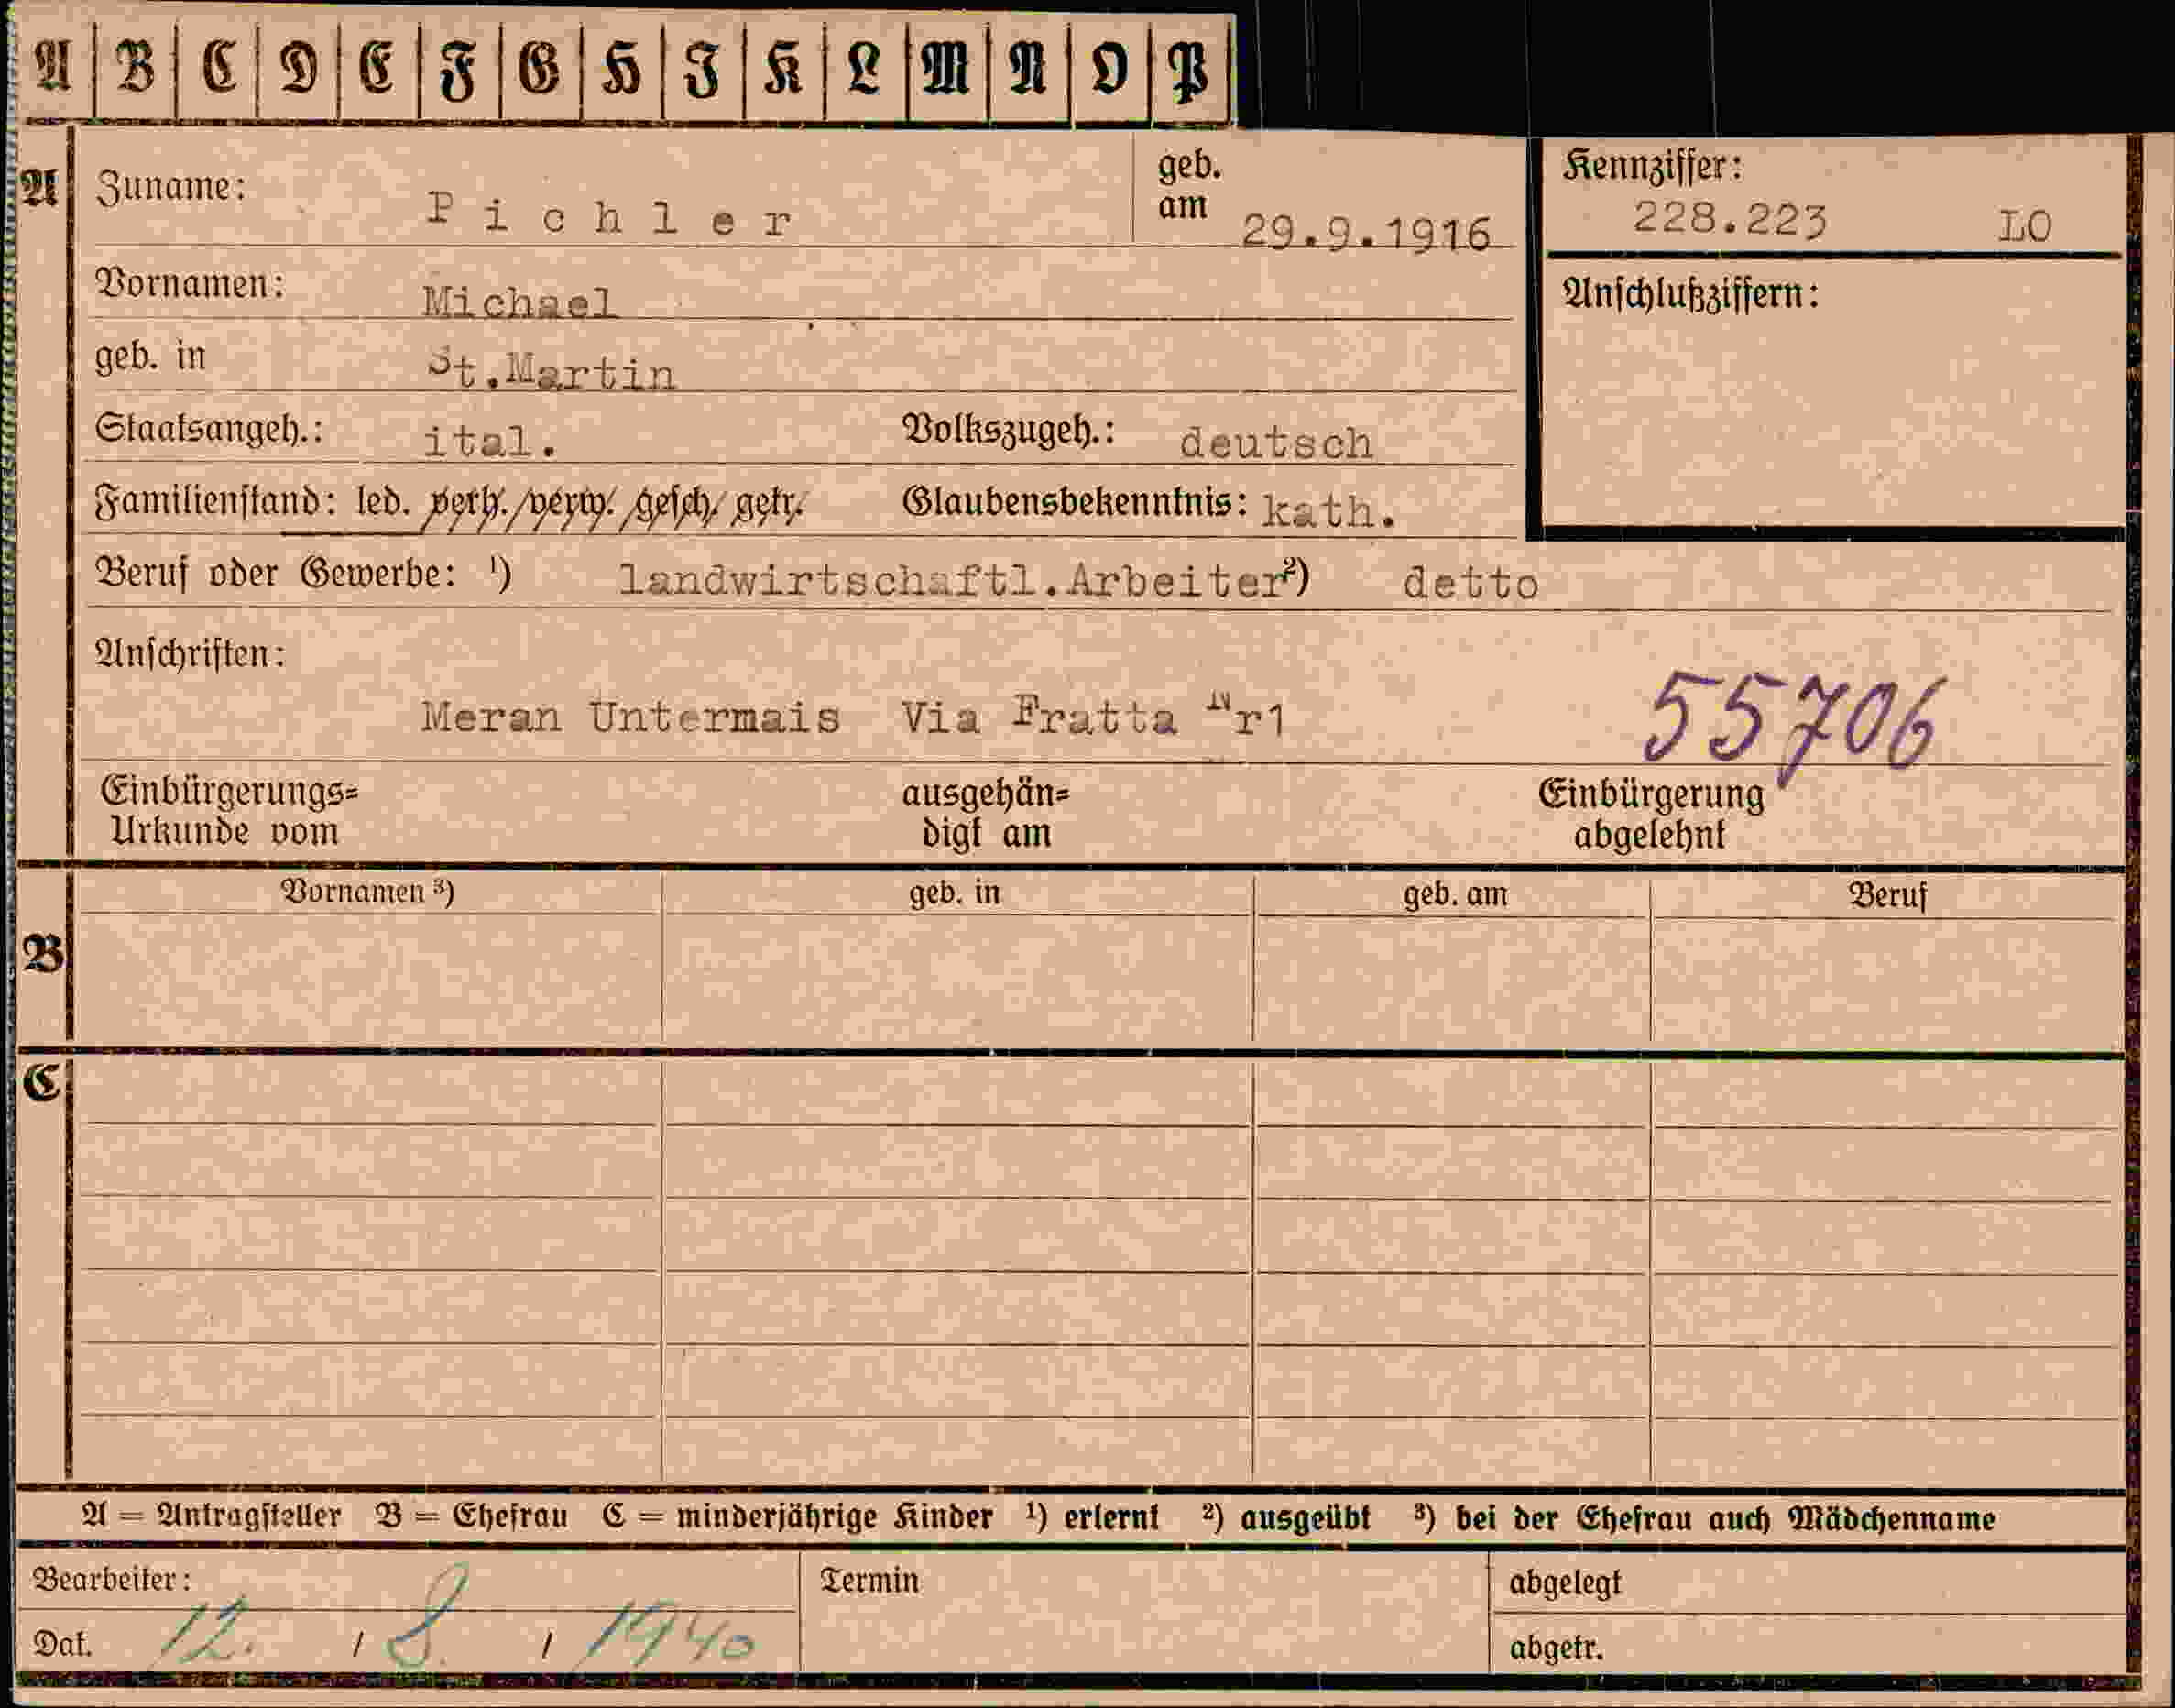 A B C D E F G H I K L M N O P
A Zuname: Pichler geb. am 29.9.1916 Kennziffer: 228.223 LO
Vornamen: Michael Anschlußziffern:
geb. in St.Martin
Staatsangeh.: ital. Volkszugeh.: deutsch
Familienstand: led. verh./verw./gesch./getr. Glaubensbekenntnis: kath.
Beruf oder Gewerbe: ¹) landwirtschaftl.Arbeiter ²) detto
Anschriften:
Meran Untermais Via Fratta Nr1 55706
Einbürgerungs= ausgehän= Einbürgerung
Urkunde vom digt am abgelehnt
Vornamen ³) geb. in geb. am Beruf
B
C
A = Antragsteller B = Ehefrau C = minderjährige Kinder ¹) erlernt ²) ausgeübt ³) bei der Ehefrau auch Mädchenname
Bearbeiter: Termin abgelegt
Dat. 12. / 8. / 1940 abgetr.